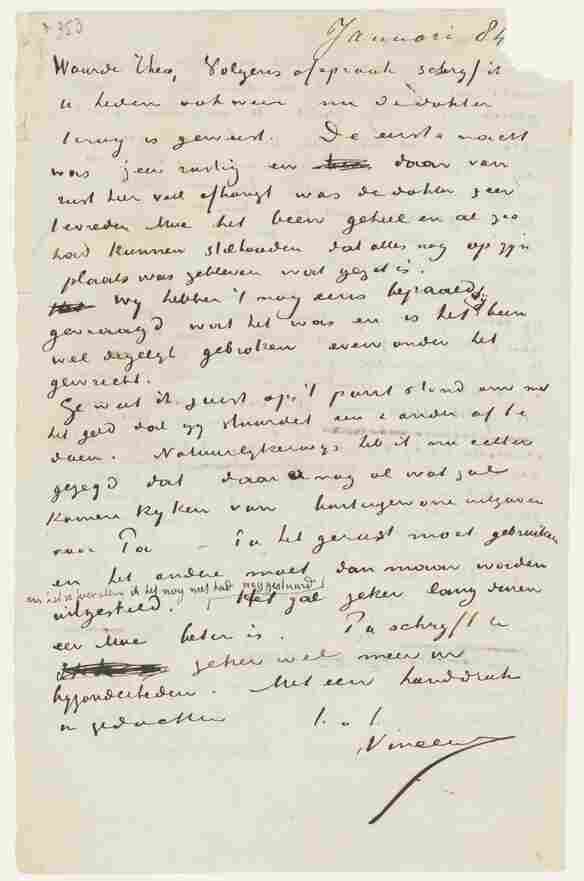 353
Januari 84
Waarde Theo, Volgens afspraak schryf ik
u heden ook weer nu de dokter
terug is geweest. De eerste nacht
was zeer rustig en daar van
rust hier veel afhangt was de dokter zeer
tevreden Moe het been geheel en al zoo
had kunnen stilhouden dat alles nog op zyn
plaats was gebleven wat gezet is.
Wy hebben 't nog eens bepaald
gevraagd wat het was en is het been
wel degelyk gebroken even onder het
gewricht.
Ge weet ik juist op 't punt stond om met
het geld dat gy stuurdet een & ander af te
doen. Natuurlykerwys heb ik nu echter
gezegd dat daar nog al wat zal
komen kyken van buitengewone uitgaven
voor Pa – Pa het gerust moet gebruiken
en het andere moet dan maar worden
en ik het nog niet had weggestuurd
uitgesteld. Het zal zeker lang duren
eer Moe beter is. Pa schryft u
zeker wel meer in
byzonderheden. Met een handdruk
in gedachten t. à t.
Vincent